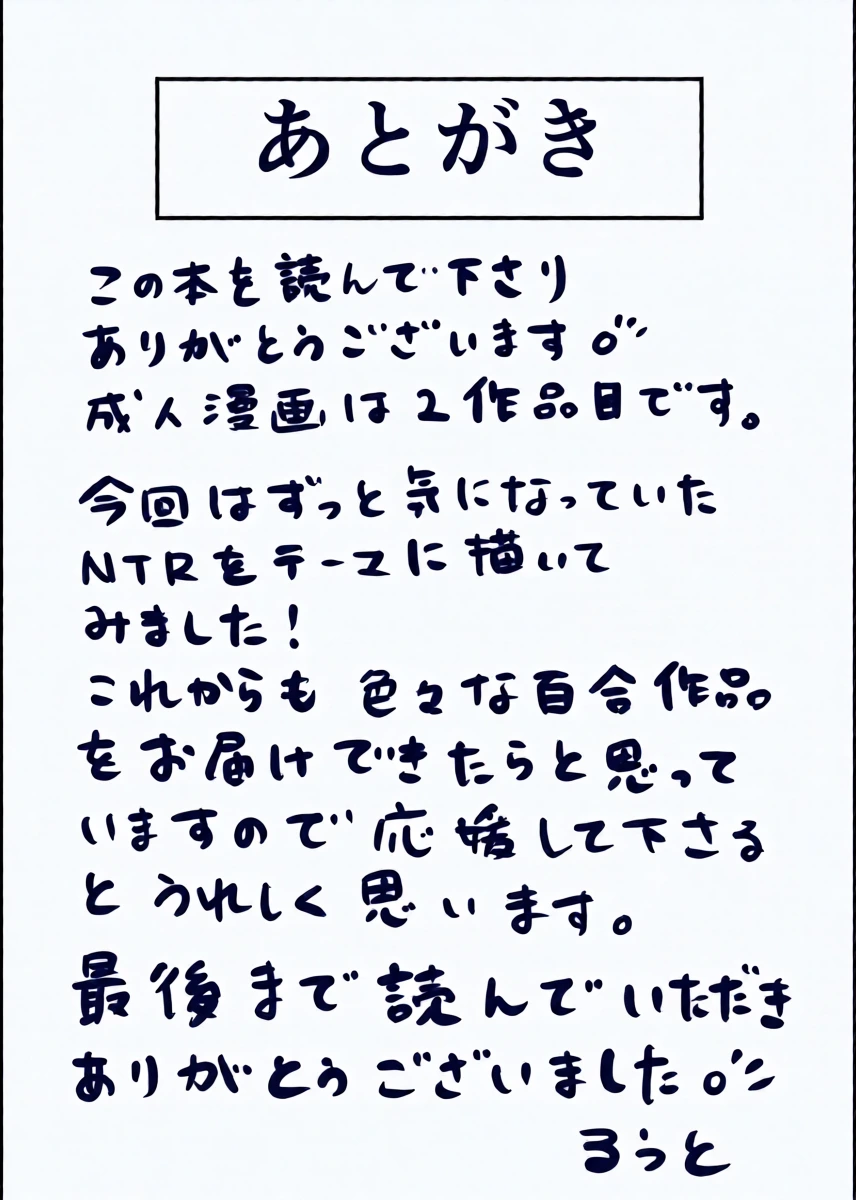 あとがき
この本を読んで下さり
ありがとうございます。
成人漫画は2作品目です。
今回はずっと気になっていた
NTRをテーマに描いて
みました!
これからも 色々な百合作品
をお届けできたらと思って
いますので応援して下さる
とうれしく思います。
最後まで読んでいただき
ありがとうございました。
るうと